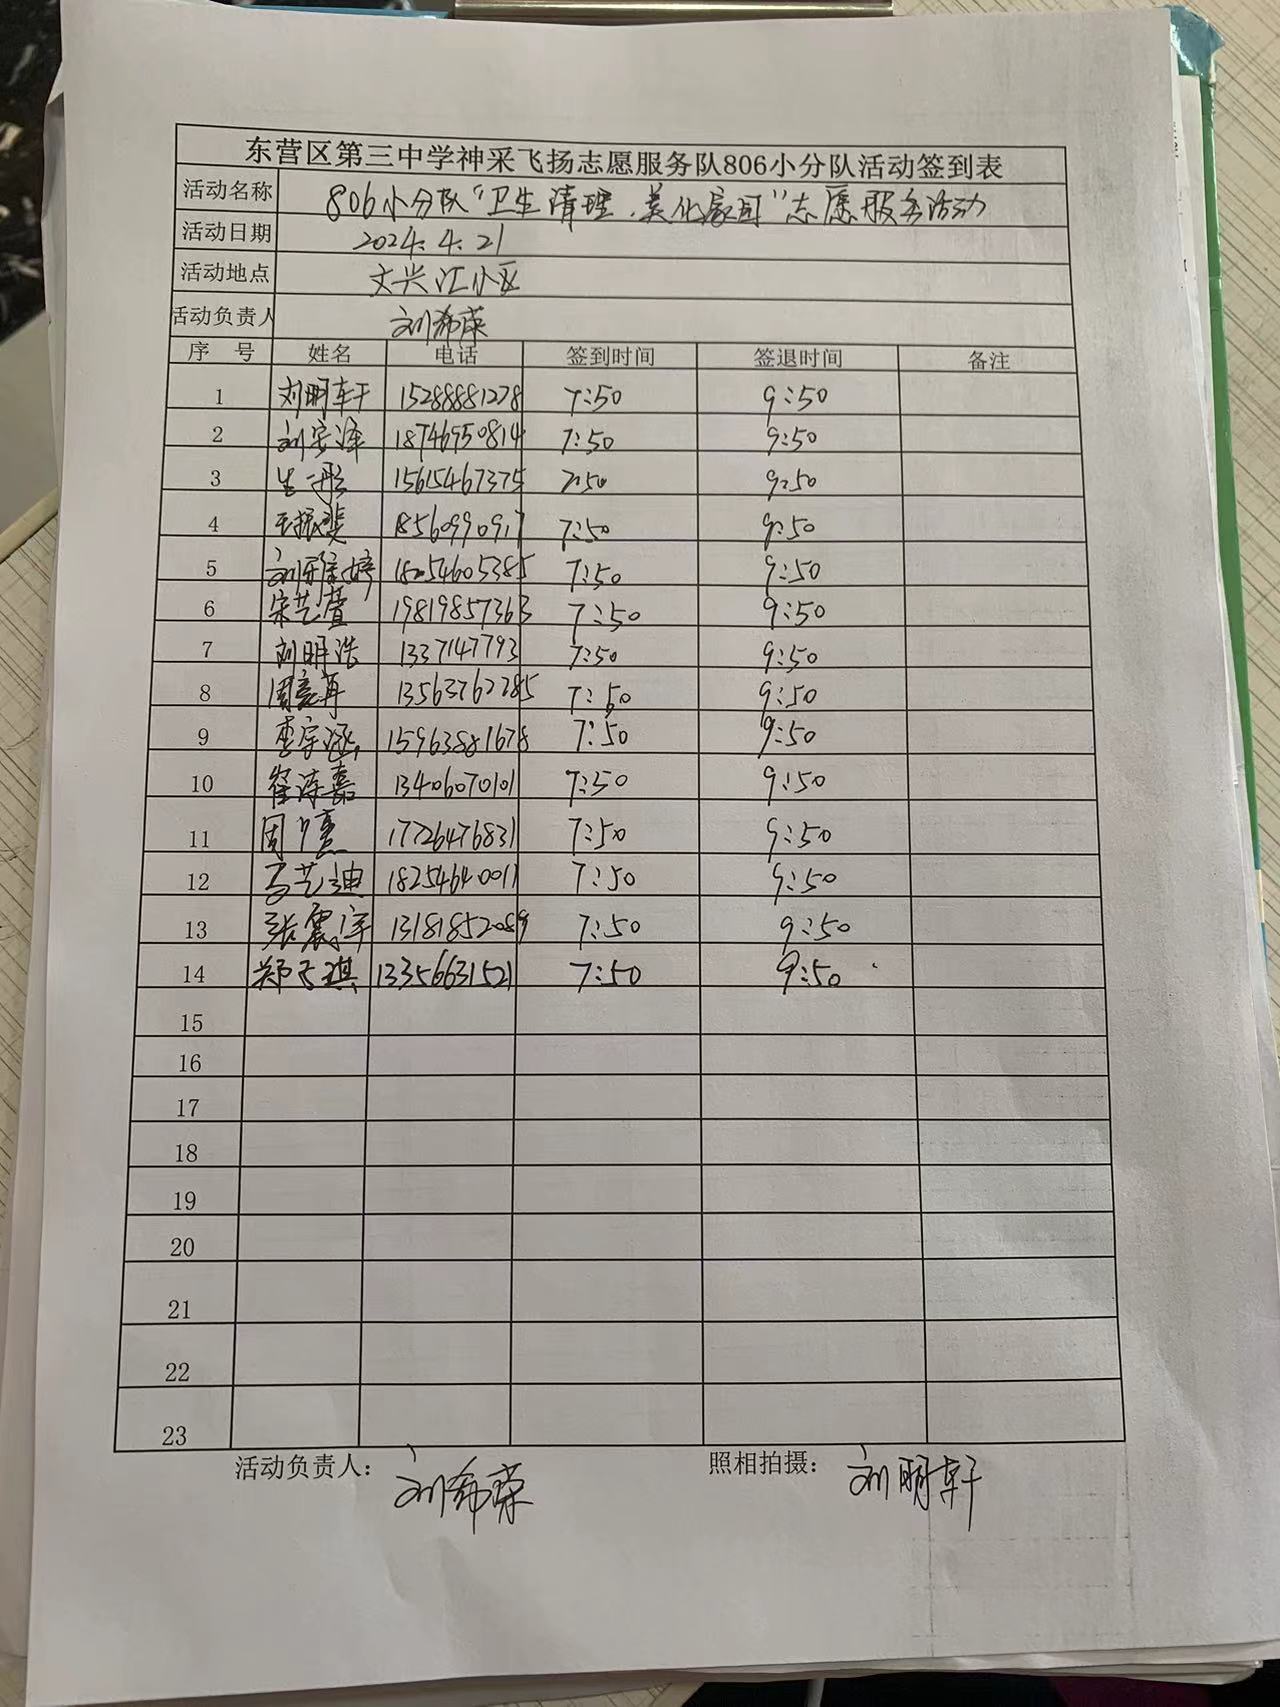 东营区第三中学神采飞扬志愿服务队806小分队活动签到表
活动名称 806小分队“卫生清理、美化家园”志愿服务活动
活动日期 2024.4.21
活动地点 文兴汇小区
活动负责人 刘希荣
序 号 姓名 电话 签到时间 签退时间 备注
1 刘明轩 15288881278 7:50 9:50
2 刘宇泽 18746950814 7:50 9:50
3 生一彤 15615467375 7:50 9:50
4 18560990917 7:50 9:50
5 18254605385 7:50 9:50
6 宋艺萱 19819857363 7:50 9:50
7 刘明浩 1337147793 7:50 9:50
8 13563762285 7:50 9:50
9 李宇涵 15963881678 7:50 9:50
10 崔诗嘉 13406070101 7:50 9:50
11 17726476831 7:50 9:50
12 马艺迪 18254640011 7:50 9:50
13 张震宇 13181852089 7:50 9:50
14 郑子琪 13356631521 7:50 9:50
15
16
17
18
19
20
21
22
23
活动负责人: 刘希荣 照相拍摄: 刘明轩